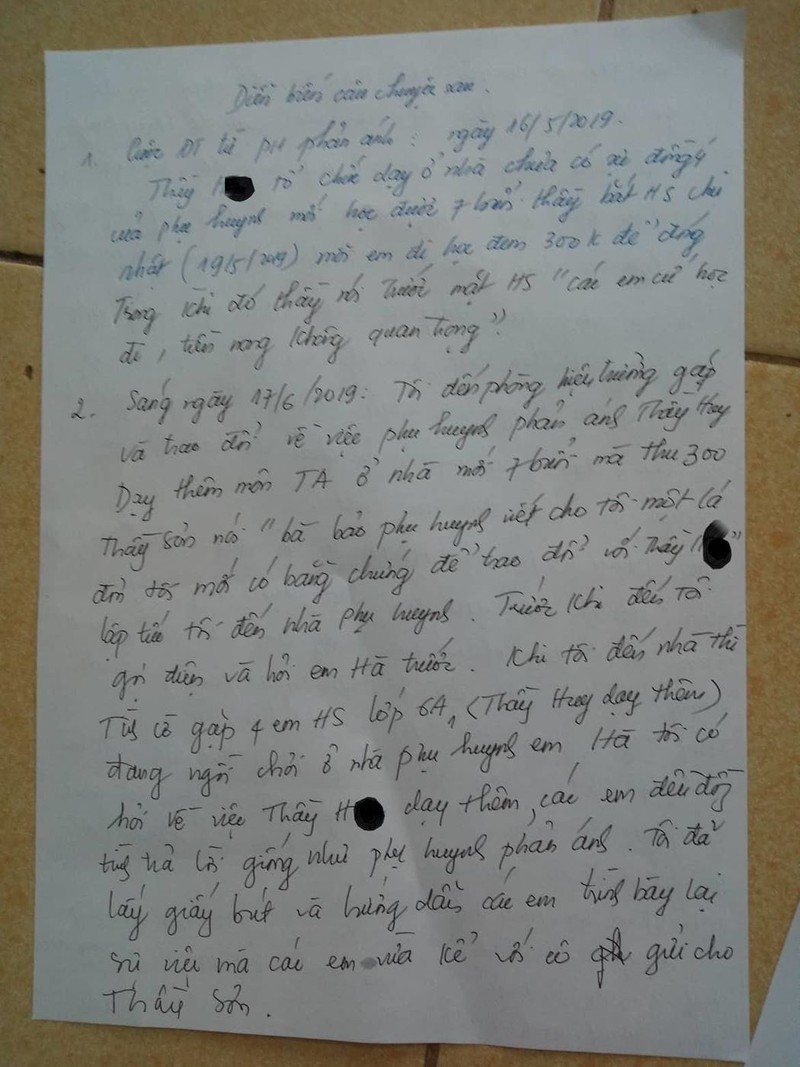 Diễn biến câu chuyện sau.
1. Cuộc ĐT từ PH phản ánh: ngày 16/5/2019.
Thầy H tổ chức dạy ở nhà chưa có sự đồng ý
của phụ huynh mới học được 7 buổi thầy bắt HS chủ
nhật (19/5/2019) mỗi em đi học đem 300k để đóng
Trong khi đó thầy nói trước mặt HS "các em cứ học
đi, tiền nong không quan trọng".
2. Sáng ngày 17/6/2019: Tôi đến phòng hiệu trưởng gặp
và trao đổi về việc phụ huynh phản ánh Thầy Huy
Dạy thêm môn TA ở nhà mới 7 buổi mà thu 300
Thầy Sơn nói "bà bảo phụ huynh viết cho tôi một lá
đơn tôi mới có bằng chứng để trao đổi với Thầy H"
lập tức tôi đến nhà phụ huynh. Trước khi đến Tôi
gọi điện và hỏi em Hà trước. Khi tôi đến nhà thì
Tình cờ gặp 4 em HS lớp 6A1 (Thầy Huy dạy thêm)
đang ngồi chơi ở nhà phụ huynh em Hà tôi có
hỏi về việc Thầy H dạy thêm, các em đều đồng
tình trả lời giống như phụ huynh phản ánh. Tôi đã
lấy giấy bút và hướng dẫn các em trình bày lại
sự việc mà các em vừa kể với cô gửi cho
Thầy Sơn.